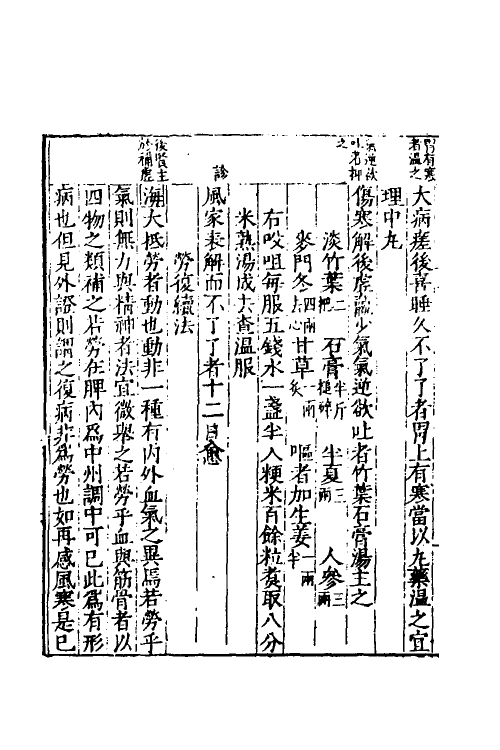 胃有寒
者温之
大病瘥後喜睡久不了了者胃上有寒當以丸藥温之宜
理中丸
氣逆欲
吐者抑
之
傷寒解後虛羸少氣氣逆欲吐者竹葉石膏湯主之
淡竹葉二把 石膏半斤槌碎 半夏三兩 人參三兩
麥門冬四兩去心 甘草一兩炙 嘔者加生姜一兩半
右㕮咀每服五錢水一盞半入粳米百餘粒煑取八分
米熟湯成去査温服
診
風家表解而不了了者十二日愈
勞復續法
後賢主
於補虛
海大抵勞者動也動非一種有内外血氣之異焉若勞乎
氣則無力與精神者法宜微舉之若勞乎血與筋骨者以
四物之類補之若勞在脾内為中州調中可已此為有形
病也但見外證則謂之復病非為勞也如再感風寒是已